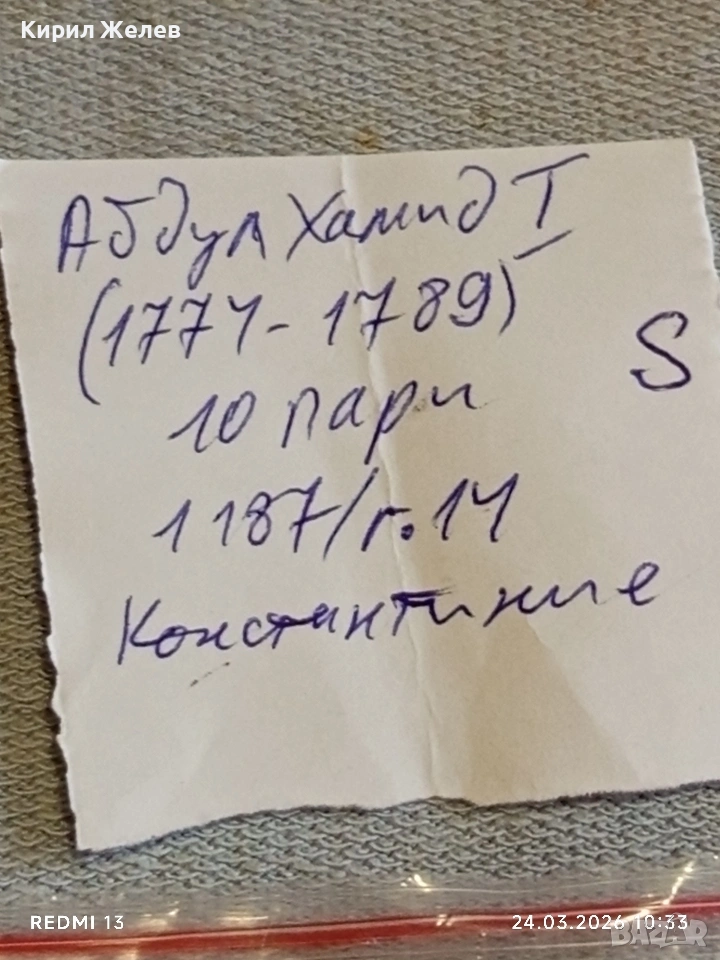 Кирил Желев
Абдул Хамид I
(1774-1789)
S
10 пари
1187/г.14
Константиние
REDMI 13
24.03.2026 10:33
BAZAR